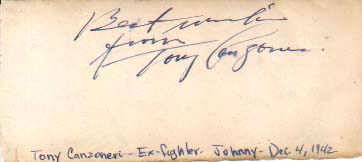 Best wishes
from
Tony Canzoneri.
Tony Canzoneri - Ex-fighter - Johnny - Dec 4, 1942